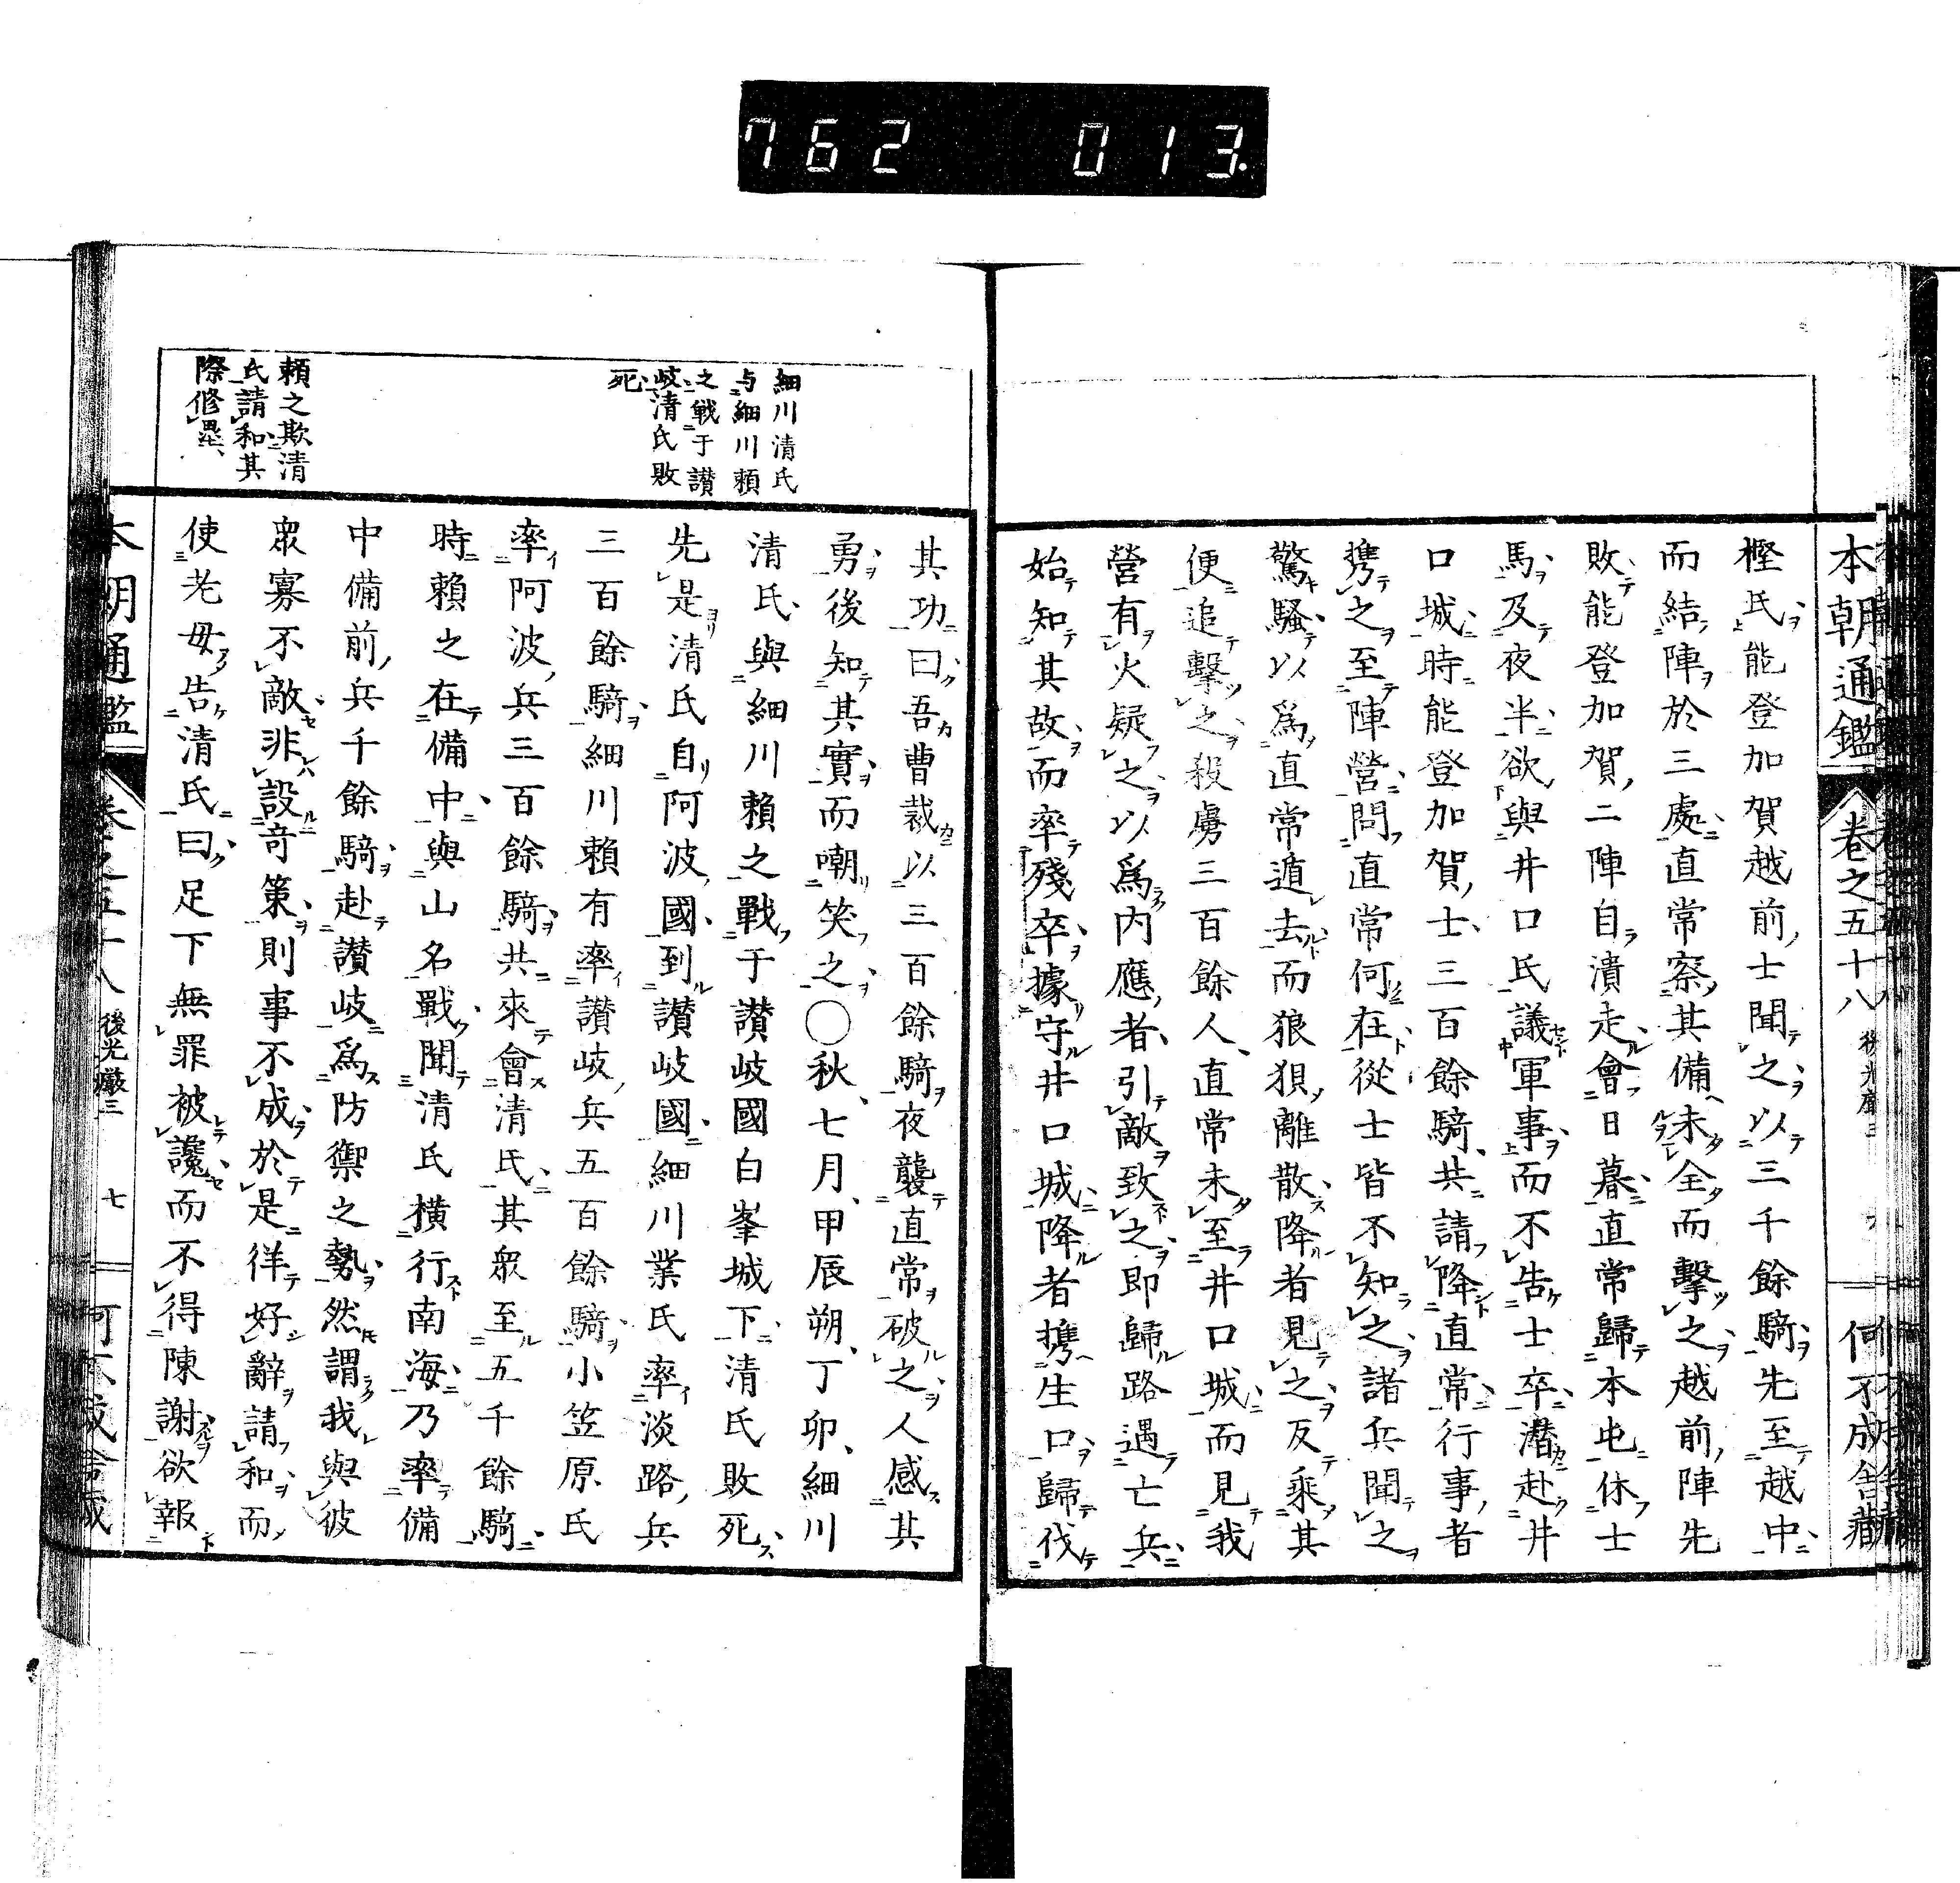 762 013.
本朝通鑑 卷之五十八 後光嚴三 六 何不成舍藏
樫氏能登加賀越前士聞之以三千餘騎先至越中
而結陣於三處直常察其備未全而擊之越前陣先
敗能登加賀二陣自潰走會日暮直常歸本屯休士
馬及夜半欲與井口氏議軍事而不告士卒潛赴井
口城時能登加賀士三百餘騎共請降直常行事者
携之至陣營問直常何在從士皆不知之諸兵聞之
驚騷以爲直常遁去而狼狽離散降者見之反乘其
便追擊之殺虜三百餘人直常未至井口城而見我
營有火疑之以爲內應者引敵致之即歸路遇亡兵
始知其故而率殘卒據守井口城降者携生口歸伐
其功曰吾曹裁以三百餘騎夜襲直常破之人感其
勇後知其實而嘲笑之○秋七月甲辰朔丁卯細川
清氏與細川賴之戰于讃岐國白峯城下清氏敗死
先是清氏自阿波國到讃岐國細川業氏率淡路兵
三百餘騎細川賴有率讃岐兵五百餘騎小笠原氏
率阿波兵三百餘騎共來會清氏其衆至五千餘騎
時賴之在備中與山名戰聞清氏橫行南海乃率備
中備前兵千餘騎赴讃岐爲防禦之勢然謂我與彼
衆寡不敵非設奇策則事不成於是佯好辭請和而
使老母告清氏曰足下無罪被讒而不得陳謝欲報
細川清氏
与細川賴
之戰于讃
岐清氏敗
死
賴之欺清
氏請和其
際修壘
本朝通鑑 卷之五十八 後光嚴三 七 何不成舍藏